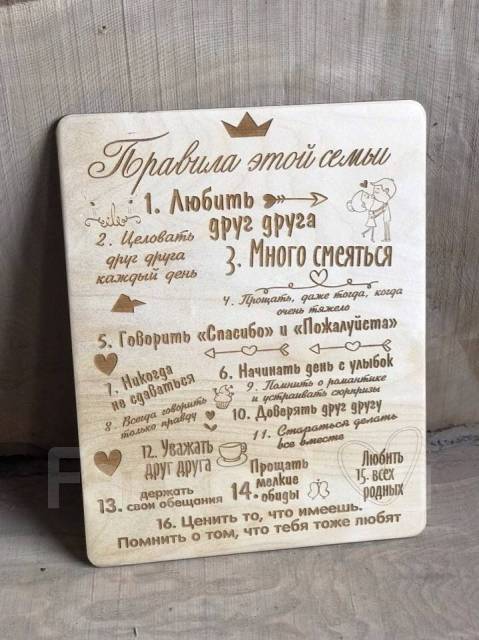 Правила этой семьи
1. Любить
друг друга
2. Целовать
друг друга
каждый день
3. Много смеяться
4. Прощать, даже тогда, когда
очень тяжело
5. Говорить «Спасибо» и «Пожалуйста»
6. Начинать день с улыбок
7. Никогда
не сдаваться
8. Всегда говорить
только правду
9. Помнить о романтике
и устраивать сюрпризы
10. Доверять друг другу
11. Стараться делать
все вместе
12. Уважать
друг друга
13. держать
свои обещания
14. Прощать
мелкие
обиды
Любить
15. всех
родных
16. Ценить то, что имеешь.
Помнить о том, что тебя тоже любят